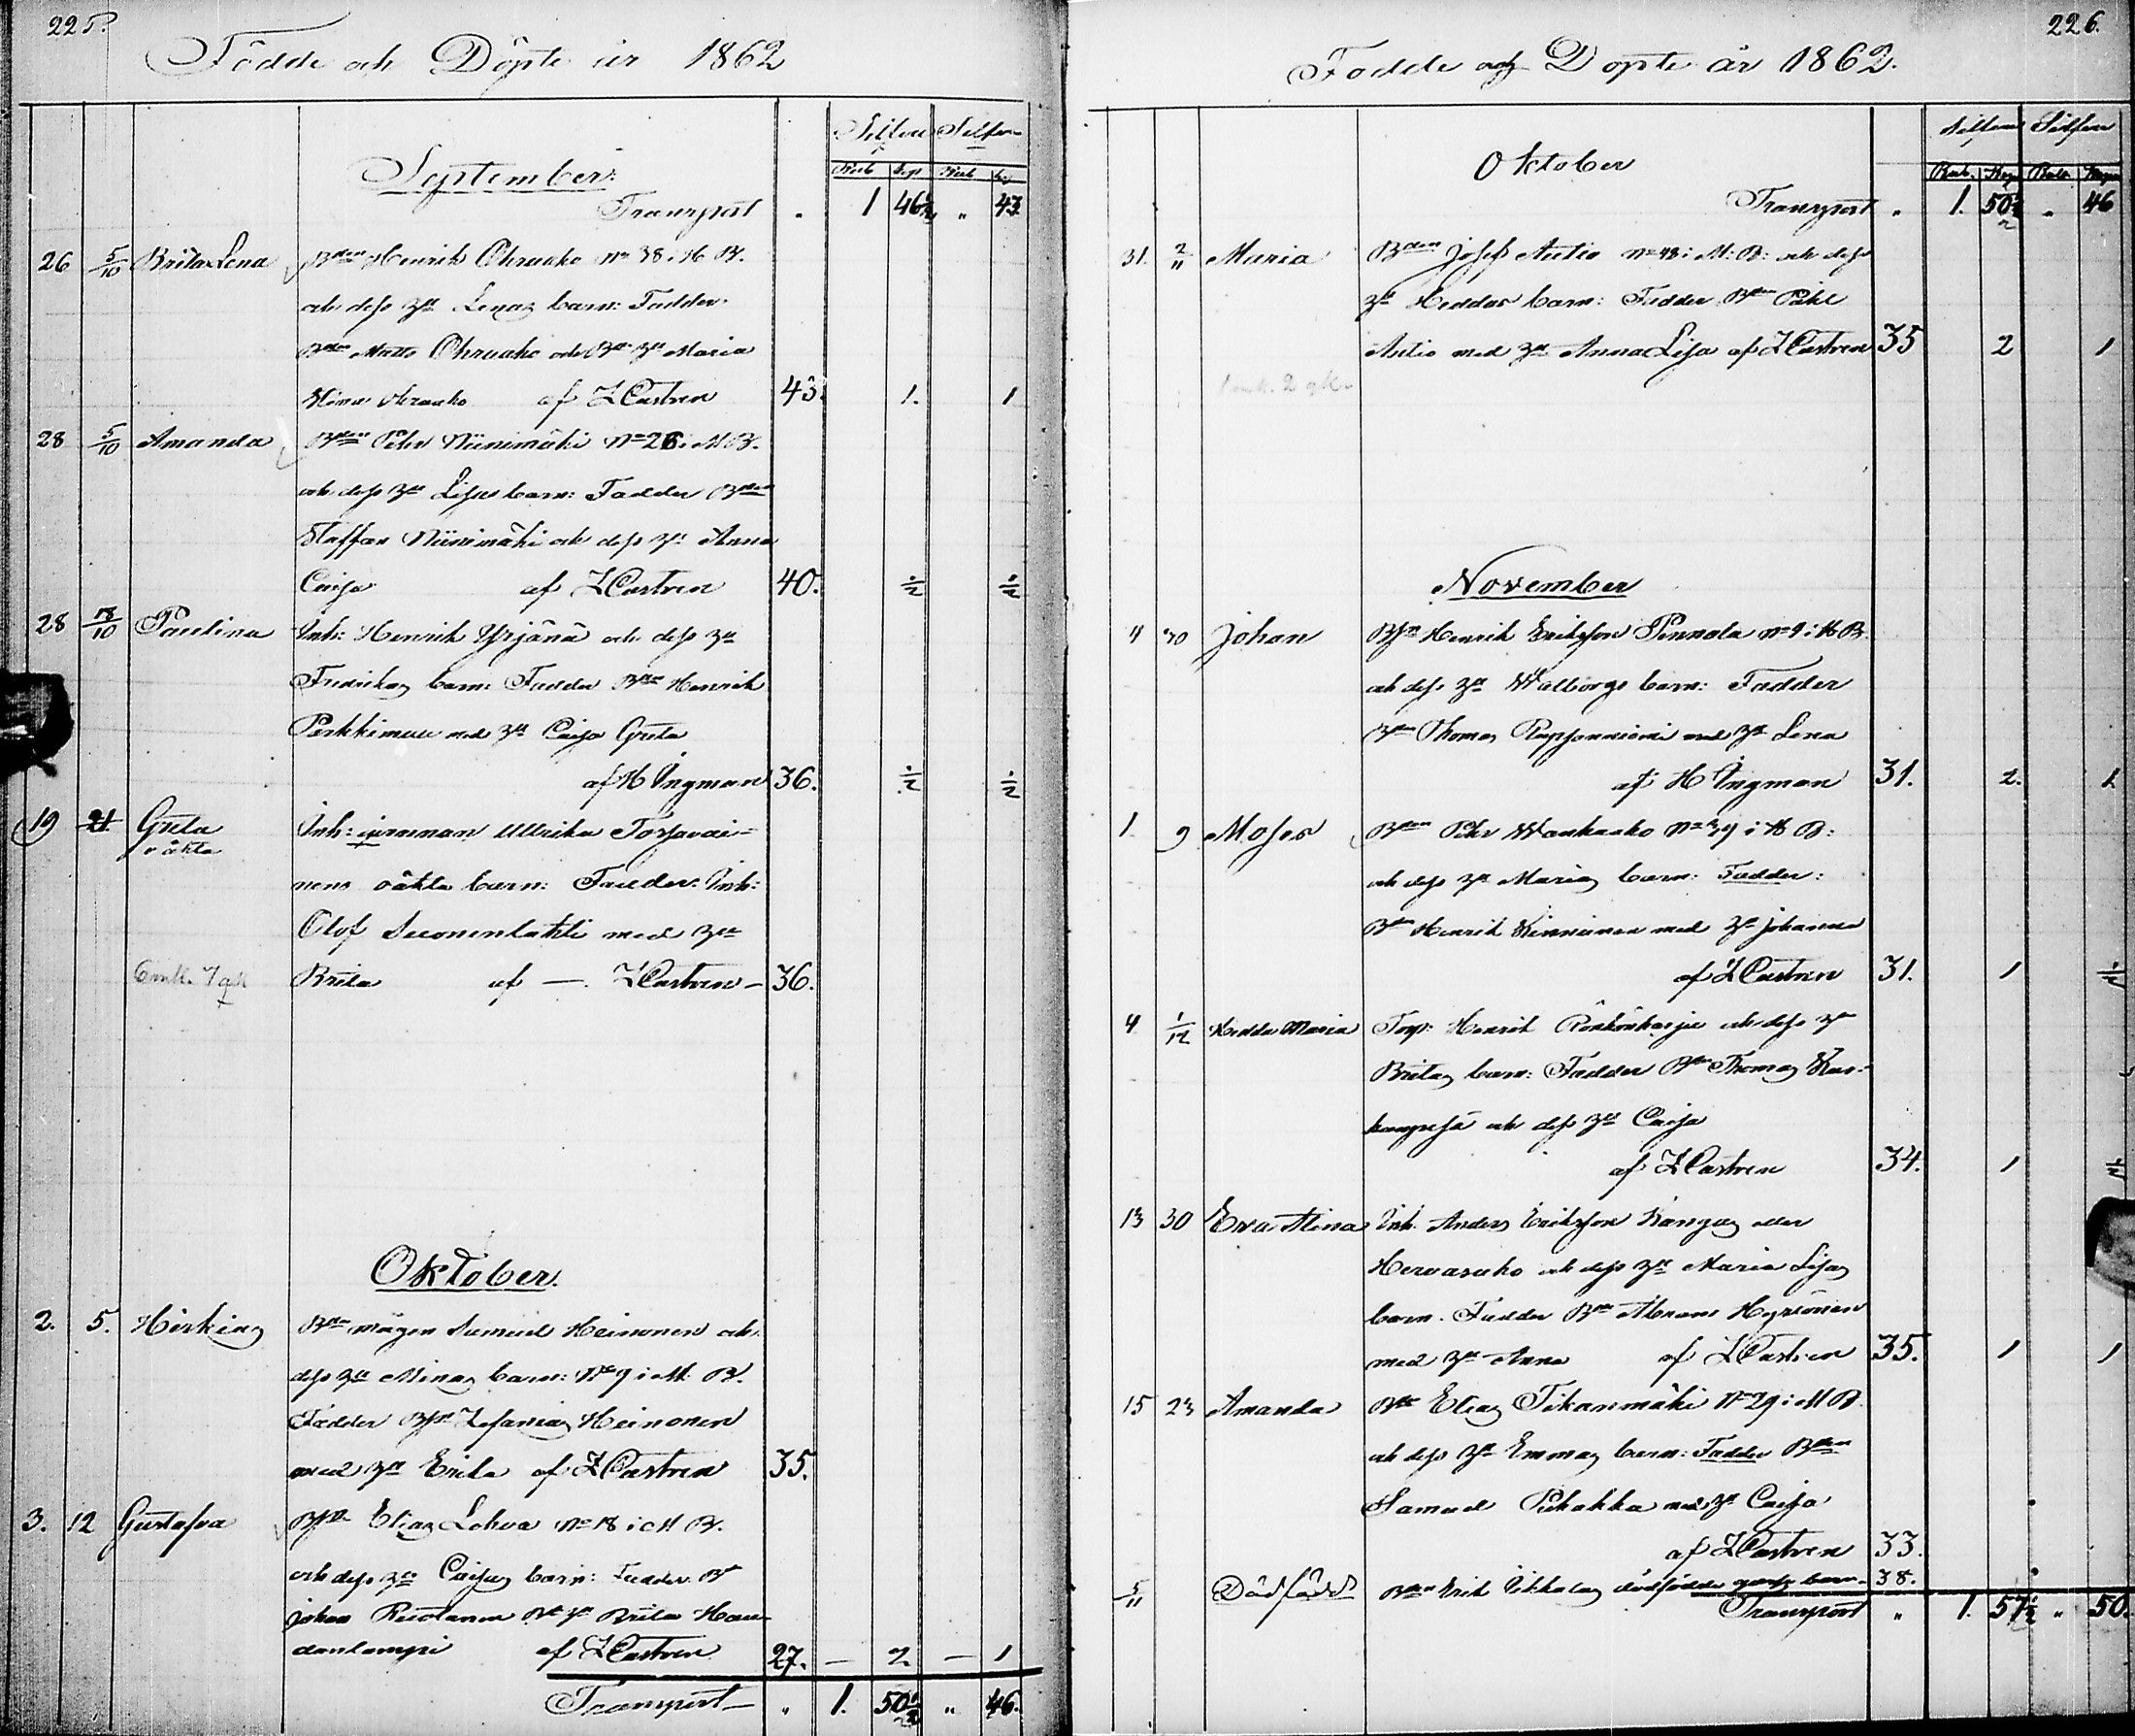 225.
Födde och Döpte år 1862
Silfver Silfver
Rub kop Rub kop
September.
Transport " 1 46½ " 43
26 5/10 Brita Lena Bden Henrik Ohraaho No 38 i H. B.
och dess hu Lenas barn: Fadder
Bden Matts Ohraaho och Bde hu Maria
Stina Ohraaho af Z Castren 43. 1. 1
28 5/10 Amanda Bden Pehr Niinimäki No 26 i M B.
och dess hu Lisas barn: Fadder Bden
Staffan Niinimäki och dess hu Anna
Caisa af Z Castren 40. ½ ½
28 18/10 Paulina Inh: Henrik Yrjänä och dess hu
Fredrikas barn: Fadder Bden Henrik
Perkkimaa med hu Caisa Greta
af H Ingman 36. ½ ½
19 21. Greta Inh: qvinnan Ullrika Torsavai-
oäkta
nens oäkta barn: Fadder: Inh:
Olof Suonenlahti med hu
6 mk. 7 qk Brita af — Z Castren — 36.
Oktober.
2. 5. Hiskias Bde mågen Samuel Heinonen och
dess hu Minas barn: No 9 i M. B.
Fadder Bden Zefanias Heinonen
med hu Erika af Z Castren 35.
3. 12 Gustafva Bden Elias Lehva No 18 i M B.
och dess hu Caisas barn: Fadder Bde
Johan Ruotanen Bde hu Brita Hau-
danlampi af Z Castren 27. — 2. — 1
Transport — " 1. 50½ " 46.
226.
Födde och Döpte år 1862.
Silfver Silfver
Rub. Kop Rub. Kop
Oktober
Transport " 1. 50½ " 46
31. 2/11 Maria Bden Josef Autio No 48 i M: B: och dess
hu Heddas barn: Fadder Bden Påhl
Autio med hu Anna Lisa af Z Castren 35 2 1
2 qk.
November
11 30 Johan Bden Henrik Eriksson Pennala No 9 i H B.
och dess hu Walborgs barn: Fadder
Bden Thomas med hu Lena
af H Ingman 31. 2. 1
1. 9 Moses Bden Pehr Wankaaho i H B:
och dess hu Marias barn: Fadder:
Bden Henrik Kinnunen med hu Johanna
af Z Castren 31. 1 ½
4 1/12 Hedda Maria Torp: Henrik Rönkönharju och dess hu
Britas barn: Fadder Bden Thomas Kus-
och dess hu Caisa
af Z Castren 34. 1 ½
13 30 Eva Stina Inh. Anders Eriksson Kangas eller
Hervaraho och dess hu Maria Lisas
barn. Fadder Bden Abram Hyrsönen
med hu Anna af Z Castren 35. 1 1
15 23 Amanda Bden Elias Tikanmäki No 29 i M B.
och dess hu Emmas barn: Fadder Bden
Samuel Pihakka med hu Caisa
af Z Castren 33.
5/11 Dödfödd Bden Erik Tikkalas dödfödda barn — 38.
Transport " 1. 57½ " 50.